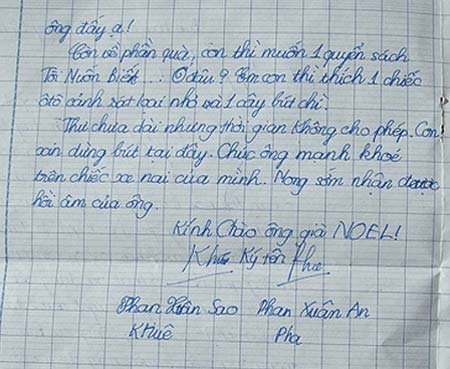 ông đấy ạ!
Còn về phần quà, con thì muốn 1 quyển sách
Tôi Muốn Biết...: Ở đâu? Em con thì thích 1 chiếc
ôtô cảnh sát loại nhỏ và 1 cây bút chì.
Thư chưa dài nhưng thời gian không cho phép. Con
xin dừng bút tại đây. Chúc ông mạnh khoẻ
trên chiếc xe nai của mình. Mong sớm nhận được
hồi âm của ông.
Kính Chào ông già NOEL!
Khuê Ký tên Pha
Phan Xuân Sao Phan Xuân An
Khuê Pha